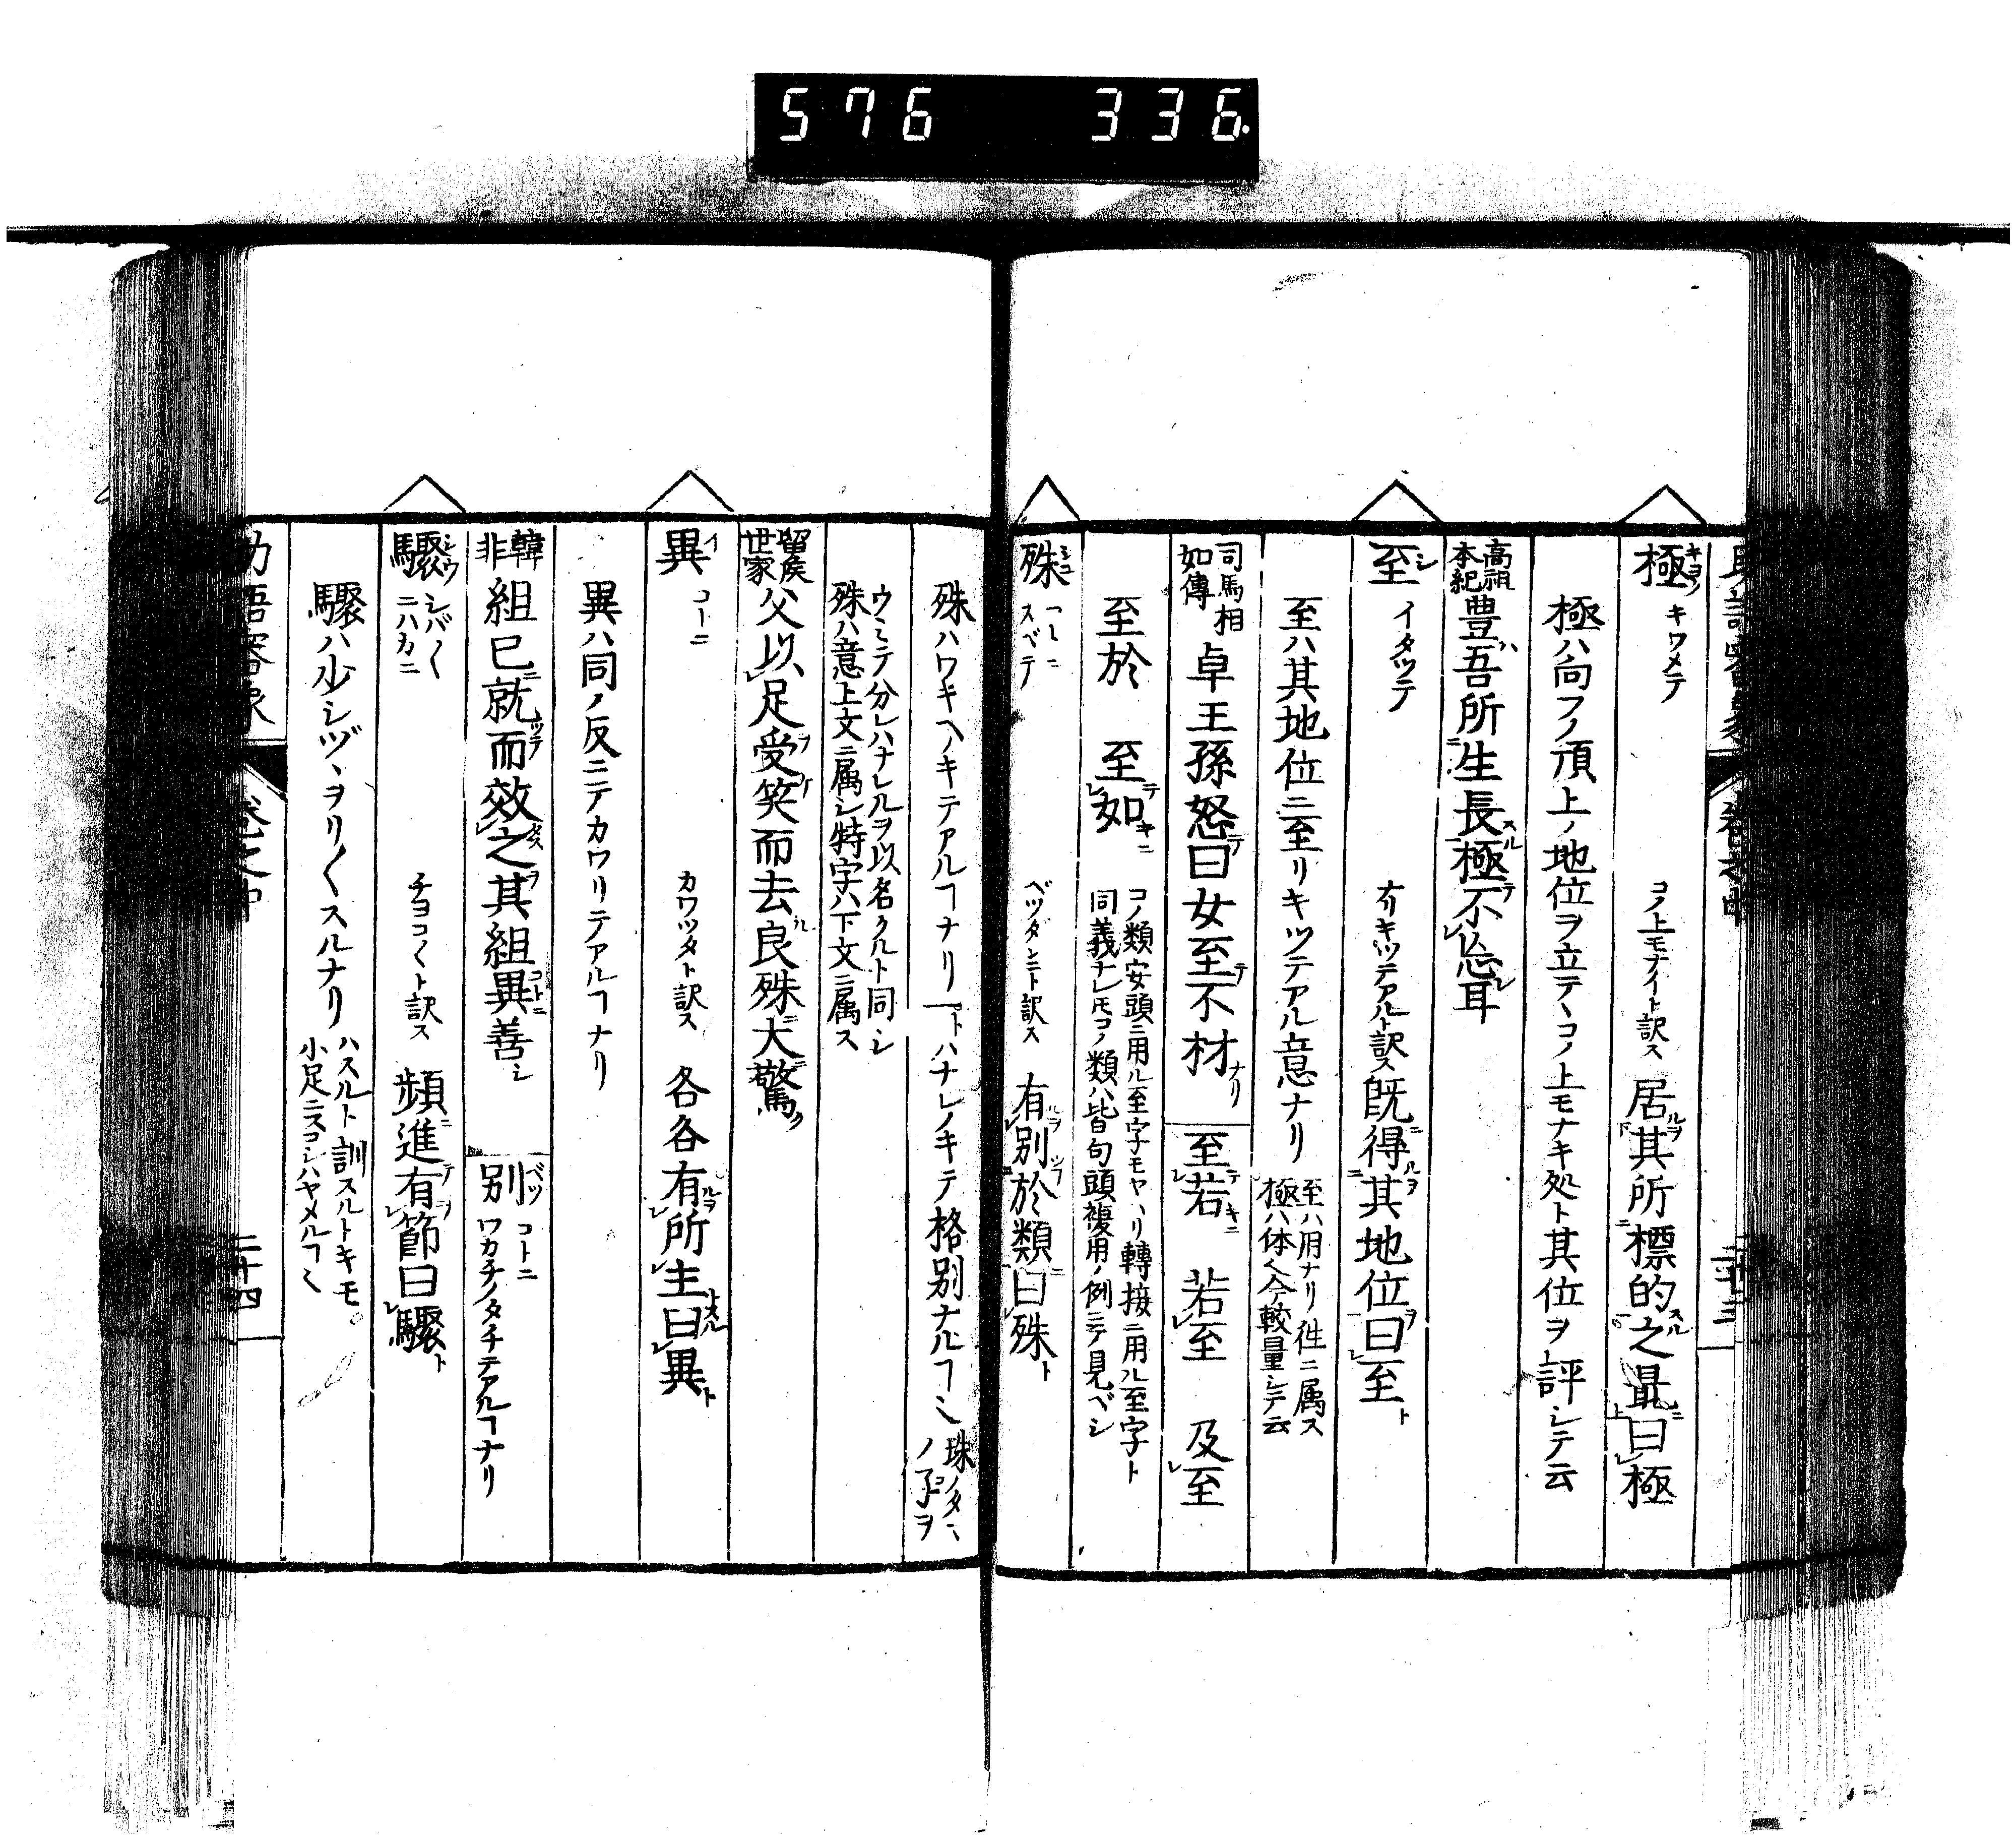 576 336.
極 キヨク キワメテ コノ上モナイト訳ス 居其所標的之最曰極
極ハ向フノ頂上ノ地位ヲ立テヽコノ上モナキ処ト其位ヲ評シテ云
高祖本紀 豊吾所生長極不忘耳
至 シ イタツテ 有キツテアルト訳ス 既得其地位曰至
至ハ其地位ニ至リキツテアル意ナリ 至ハ用ナリ往ニ属ス
極ハ体今較量シテ云
司馬相如傳 卓王孫怒曰女至不材 至若 若至 及至
至於 至如 コノ類安頭ニ用ル至字モヤハリ轉接ニ用ル至字ト
同義ナレ𪜈コノ類ハ皆句頭複用ノ例ニテ見ベシ
殊 シユ スベテ ベツダンニト訳ス 有別於類曰殊
殊ハワキヘノキテアルヿナリ ハナレノキテ格別ナルヿ
ウミテ分レハナレルヲ以名クルト同シ
殊ハ意上文ニ属シ特字ハ下文ニ属ス
留矦世家 父以足受笑而去良殊大驚
異 イ コーニ カワツタト訳ス 各各有所主曰異
異ハ同ノ反ニテカワリテアルヿナリ
韓非 組已就而效之其組異善 別 ベツ コトニ ワカチノタチテアルヿナリ
驟 シウ シバ〱 ニハカニ チヨコ〱ト訳ス 頻進有節曰驟
驟ハ少シヅヽヲリ〱スルナリ ハスルト訓スルトキモ
小足ニスコシハヤメルヿ
二十四